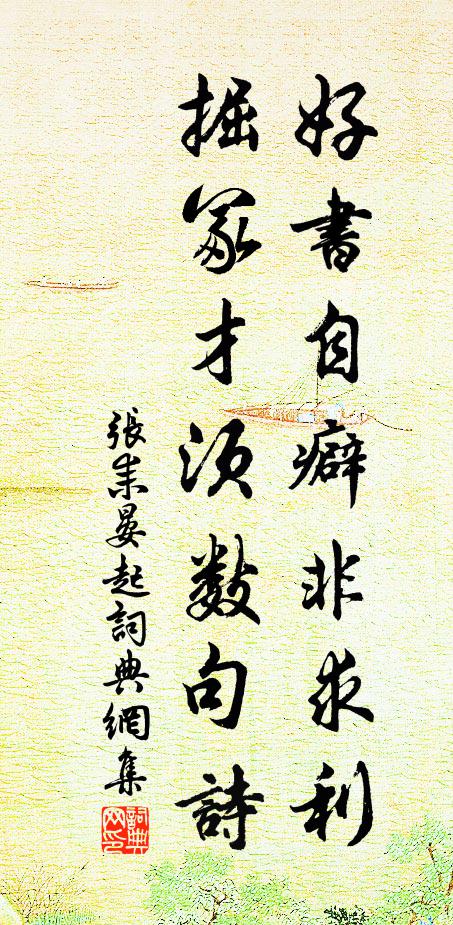 好書自癖非求利
掘冢才須數句詩
張耒晏起詞典網集
詞典网印